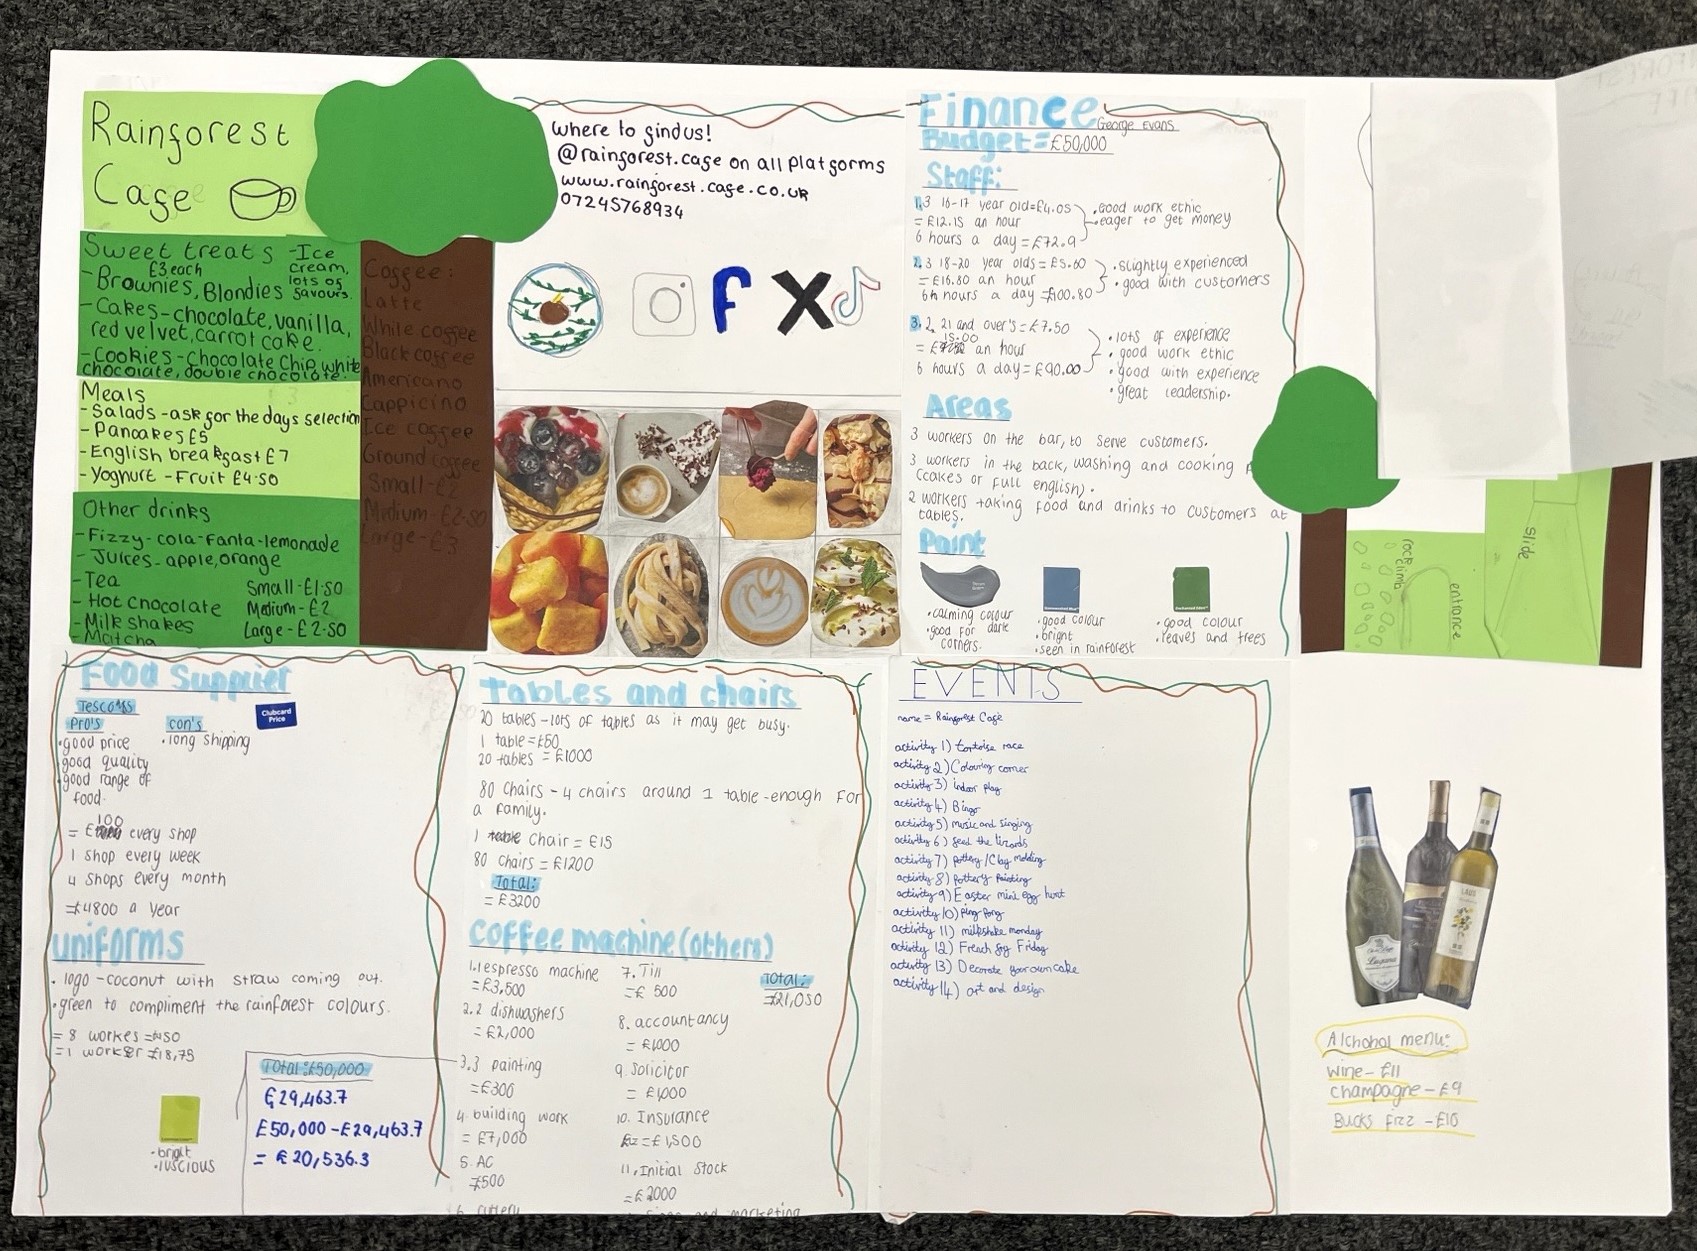 Rainforest
Cafe
Sweet treats
£3 each
- Brownies, Blondies
- Ice
cream,
lots of
favours.
- Cakes - chocolate, vanilla,
red velvet, carrot cake.
- Cookies - Chocolate Chip, white
chocolate, double chocolate.
Meals
- Salads - ask for the days selection
- Pancakes £5
- English breakfast £7
- Yoghurt - Fruit £4.50
Other drinks
- Fizzy - cola - fanta - lemonade
- Juices - apple, orange
- Tea
- Hot chocolate
- Milk shakes
- Matcha
Small - £1.50
Medium - £2
Large - £2.50
Coffee:
Latte
White coffee
Black coffee
Americano
Cappicino
Ice coffee
Ground coffee
Small - £2
Medium - £2.50
Large - £3
Where to find us!
@rainforest.cafe on all platforms
www.rainforest.cafe.co.uk
07245768934
Finance
George Evans
Budget = £50,000
Staff:
1. 3 16-17 year old = £4.05
= £12.15 an hour
6 hours a day = £72.9
. Good work ethic
. eager to get money
2. 3 18-20 year olds = £5.60
= £16.80 an hour
6 hours a day = £100.80
. slightly experienced
. good with customers
3. 2, 21 and over's = £7.50
15.00
= £ an hour
6 hours a day = £90.00
. lots of experience
. good work ethic
. good with experience
. great leadership.
Areas
3 workers on the bar, to serve customers.
3 workers in the back, washing and cooking
(cakes or full english).
2 workers taking food and drinks to customers at
tables.
Paint
. calming colour
. good for dark
corners.
. good colour
. bright
. seen in rainforest
. good colour
. leaves and trees
rock
climb
entrance
Slide
Food Supplier
Tescos
Pro's
. good price
good quality
good range of
food.
con's
. long shipping
Clubcard
Price
100
= £ every shop
1 shop every week
4 shops every month
= £4800 a year
Uniforms
. logo - coconut with straw coming out.
. green to compliment the rainforest colours.
= 8 workes = £150
= 1 worker £18,75
. bright
. luscious
Total: £50,000
£29,463.7
£50,000 - £29,463.7
= £20,536.3
Tables and chairs
20 tables - lots of tables as it may get busy.
1 table = £50
20 tables = £1000
80 Chairs - 4 chairs around 1 table - enough for
a family.
1 chair = £15
80 chairs = £1200
Total:
= £3200
Coffee machine (others)
1. 1 espresso machine
= £3,500
2. 2 dishwashers
= £2,000
3. 3 painting
= £300
4. building work
= £7,000
5. AC
£500
6. cutlery
7. Till
= £500
8. accountancy
= £1000
9. Solicitor
= £1,000
10. Insurance
= £1,500
11. Initial Stock
= £2000
and marketing
Total:
= £21,050
EVENTS
name = Rainforest Cafe
activity 1) tortoise race
activity 2) Colouring corner
activity 3) indoor play
activity 4) Bingo
activity 5) music and singing
activity 6) feed the lizards
activity 7) pottery / Clay molding
activity 8) pottery painting
activity 9) Easter mini egg hunt
activity 10) ping pong
activity 11) milkshake monday
activity 12) French fry Friday
activity 13) Decorate your own cake
activity 14) art and design
Lugana
LAUS
Alchohol menu:
Wine - £11
Champagne - £9
Bucks fizz - £10